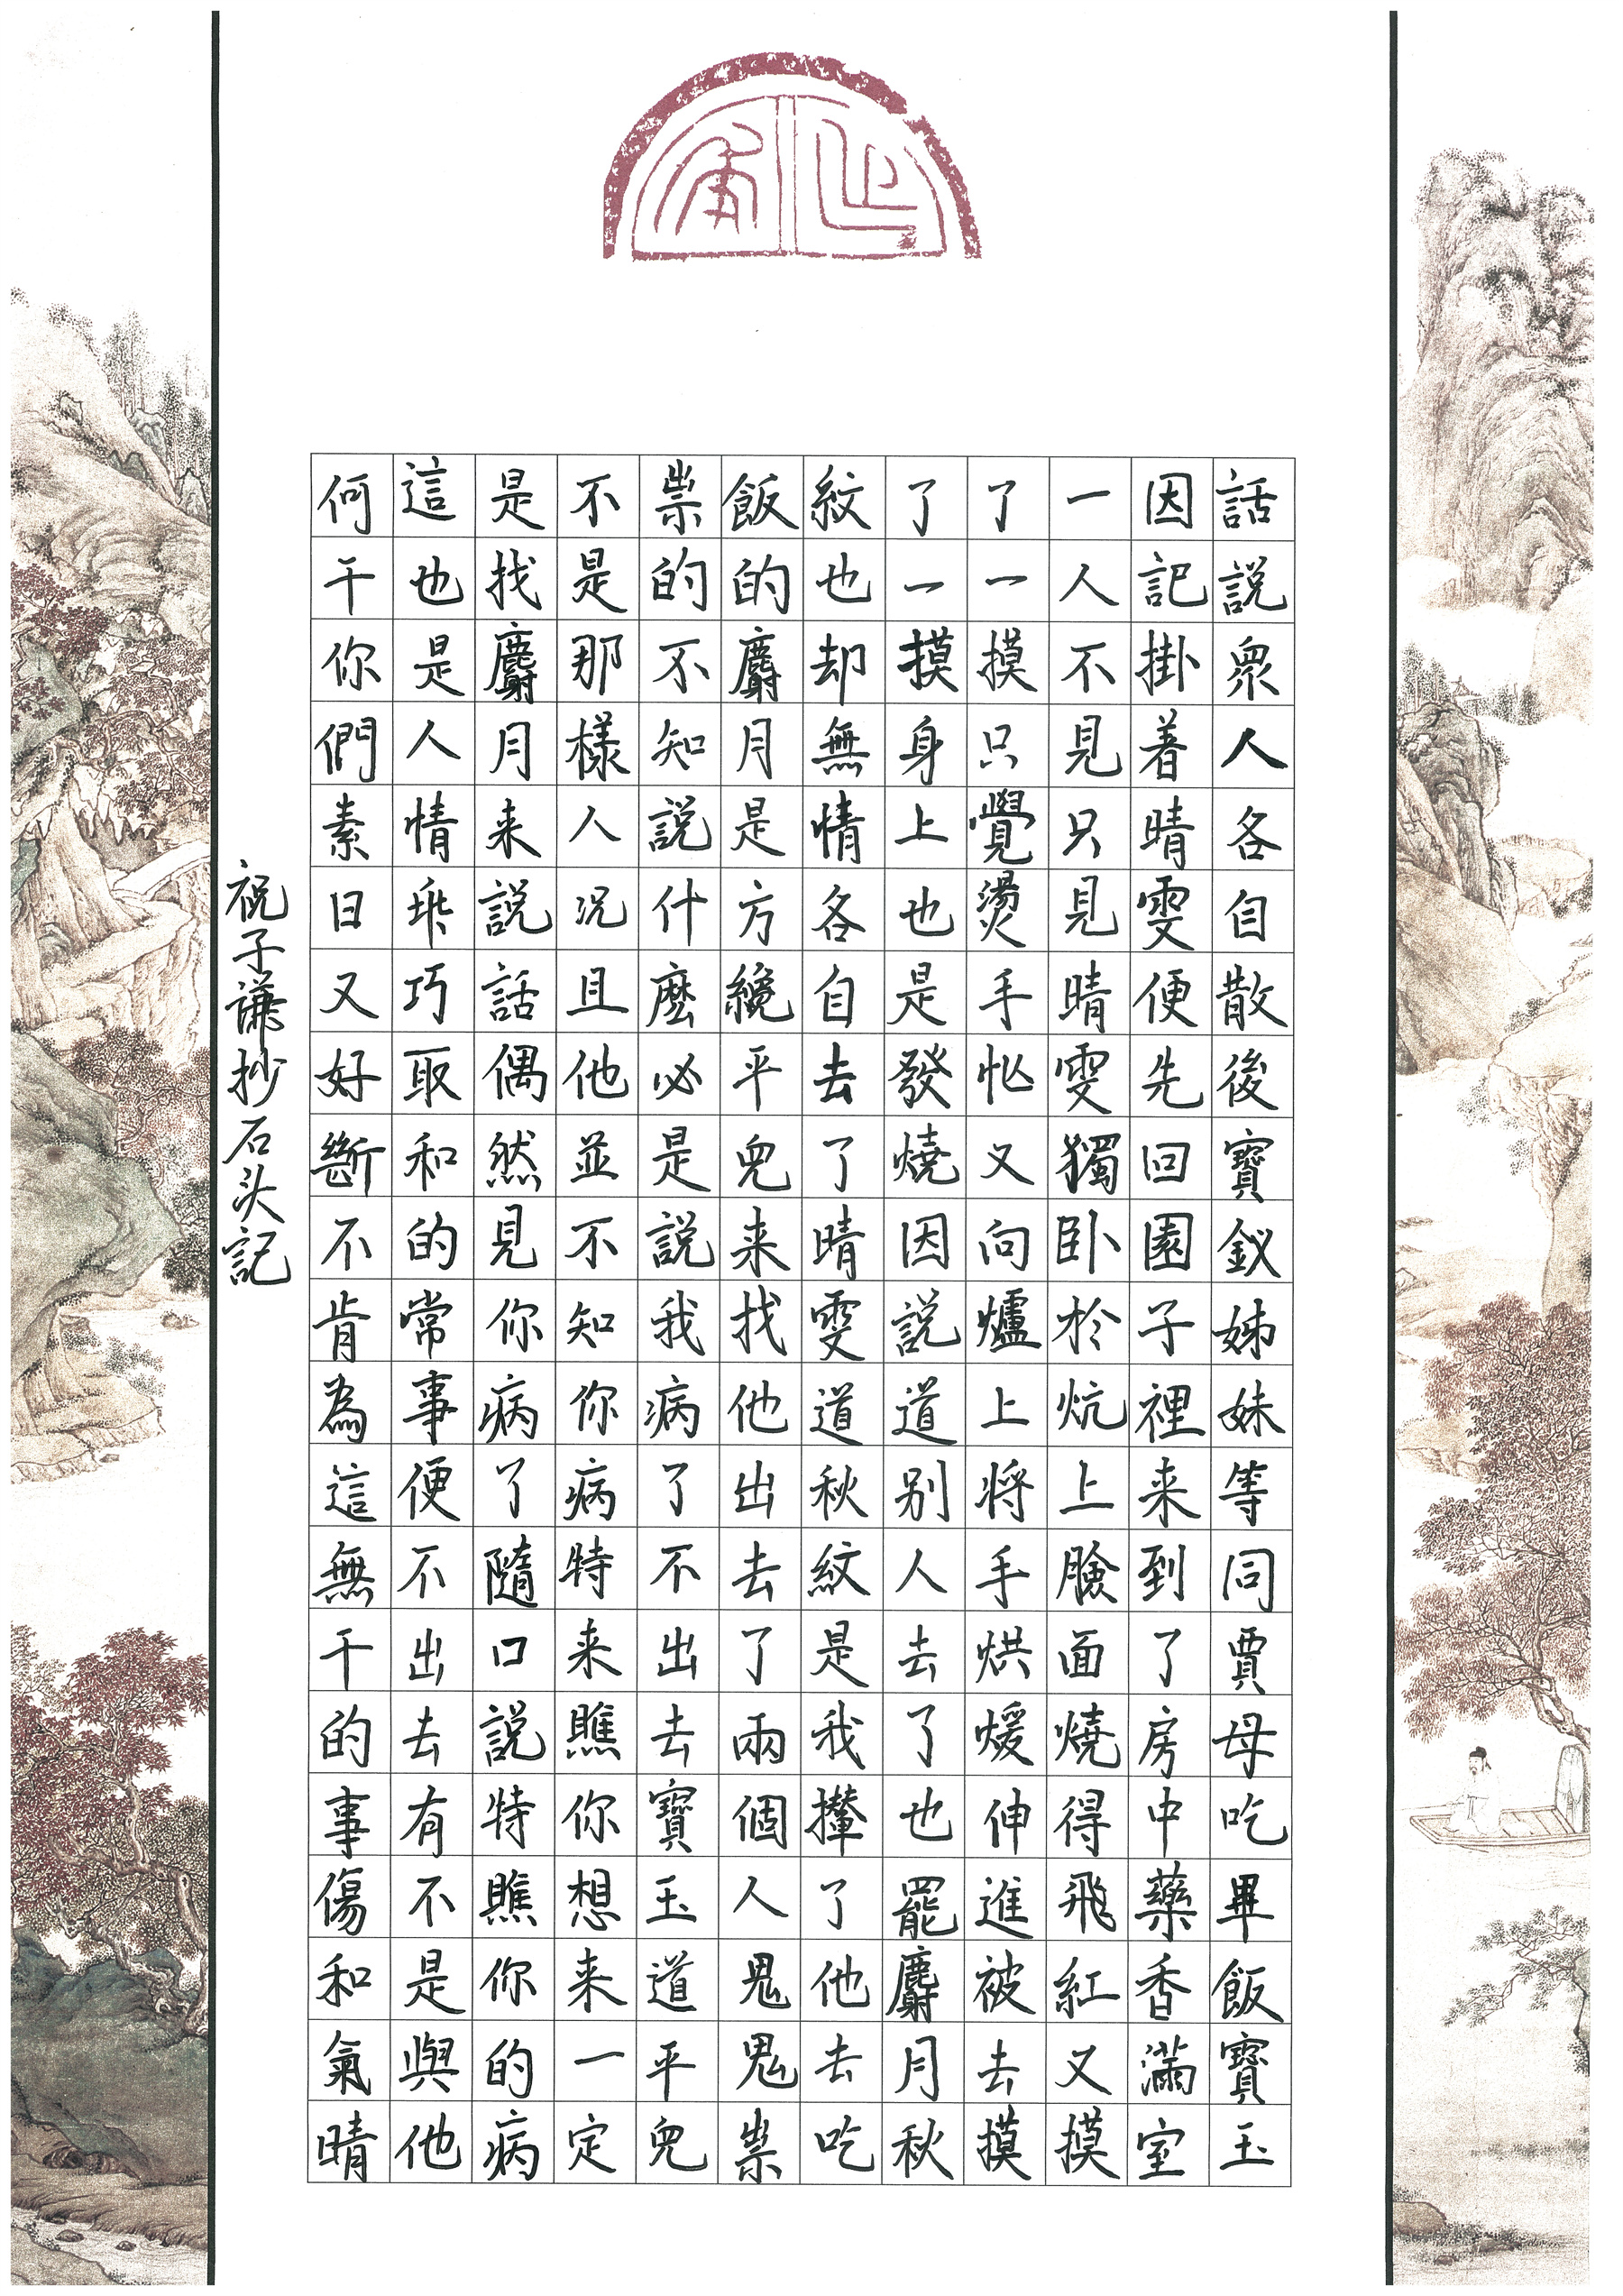 話說衆人各自散後寶釵姊妹等同賈母吃畢飯寶玉
因記掛着晴雯便先回園子裡来到了房中藥香滿室
一人不見只見晴雯獨卧於炕上臉面燒得飛紅又摸
了一摸只覺燙手忙又向爐上将手烘煖伸進被去摸
了一摸身上也是發燒因說道别人去了也罷麝月秋
紋也却無情各自去了晴雯道秋紋是我攆了他去吃
飯的麝月是方纔平兒来找他出去了兩個人鬼鬼祟
祟的不知說什麼必是說我病了不出去寶玉道平兒
不是那樣人况且他並不知你病特来瞧你想来一定
是找麝月来說話偶然見你病了隨口說特瞧你的病
這也是人情乖巧取和的常事便不出去有不是與他
何干你們素日又好斷不肯為這無干的事傷和氣晴
祝子謙抄石头記